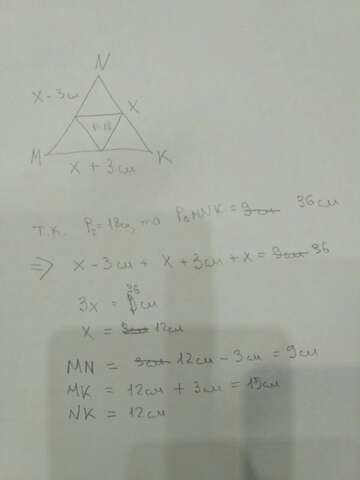 N
x - 3см
x
P=18
M
K
x + 3см
т.к. P₂=18см, то PΔMNK = 9см 36см
⇒ x - 3см + x + 3см + x = 9см 36
36
3x = см
x = 3см 12см
MN = 3см 12см - 3см = 9см
MK = 12см + 3см = 15см
NK = 12см